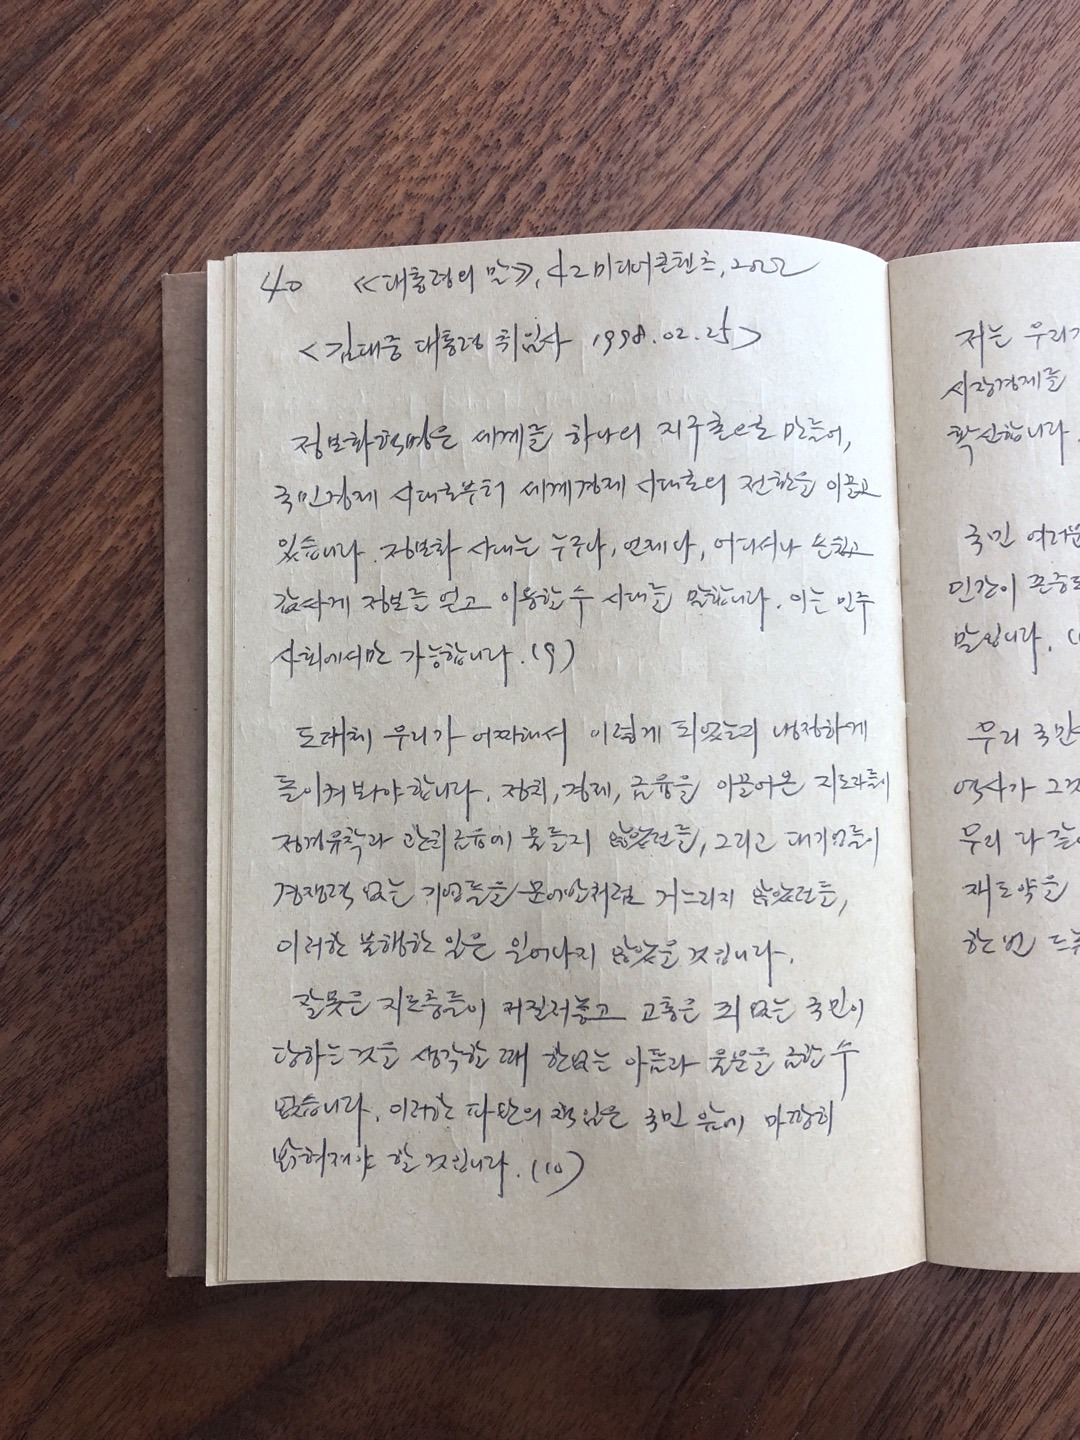 40 《대통령의 말》, 42미디어콘텐츠, 2022
<김대중 대통령 취임사 1998.02.25>
정보화혁명은 세계를 하나의 지구촌으로 만들어,
국민경제 시대로부터 세계경제 시대로의 전환을 이끌고
있습니다. 정보화 시대는 누구나, 언제나, 어디서나 손쉽고
값싸게 정보를 얻고 이용할 수 시대를 말합니다. 이는 민주
사회에서만 가능합니다. (9)
도대체 우리가 어찌해서 이렇게 되었는지 냉정하게
돌이켜봐야 합니다. 정치, 경제, 금융을 이끌어온 지도자들이
정경유착과 관치금융에 물들지 않았던들, 그리고 대기업들이
경쟁력 없는 기업들을 문어발처럼 거느리지 않았던들,
이러한 불행한 일은 일어나지 않았을 것입니다.
잘못은 지도층들이 저질러놓고 고통은 죄 없는 국민이
당하는 것을 생각할 때 한없는 아픔과 울분을 금할 수
없습니다. 이러한 파탄의 책임은 국민 앞에 마땅히
밝혀져야 할 것입니다. (10)
저는 우리가
시장경제를
확신합니다.
국민 여러분
민간이 주
말입니다.
우리 국민
역사가 그것
우리 다 같이
재도약을
한 번 드